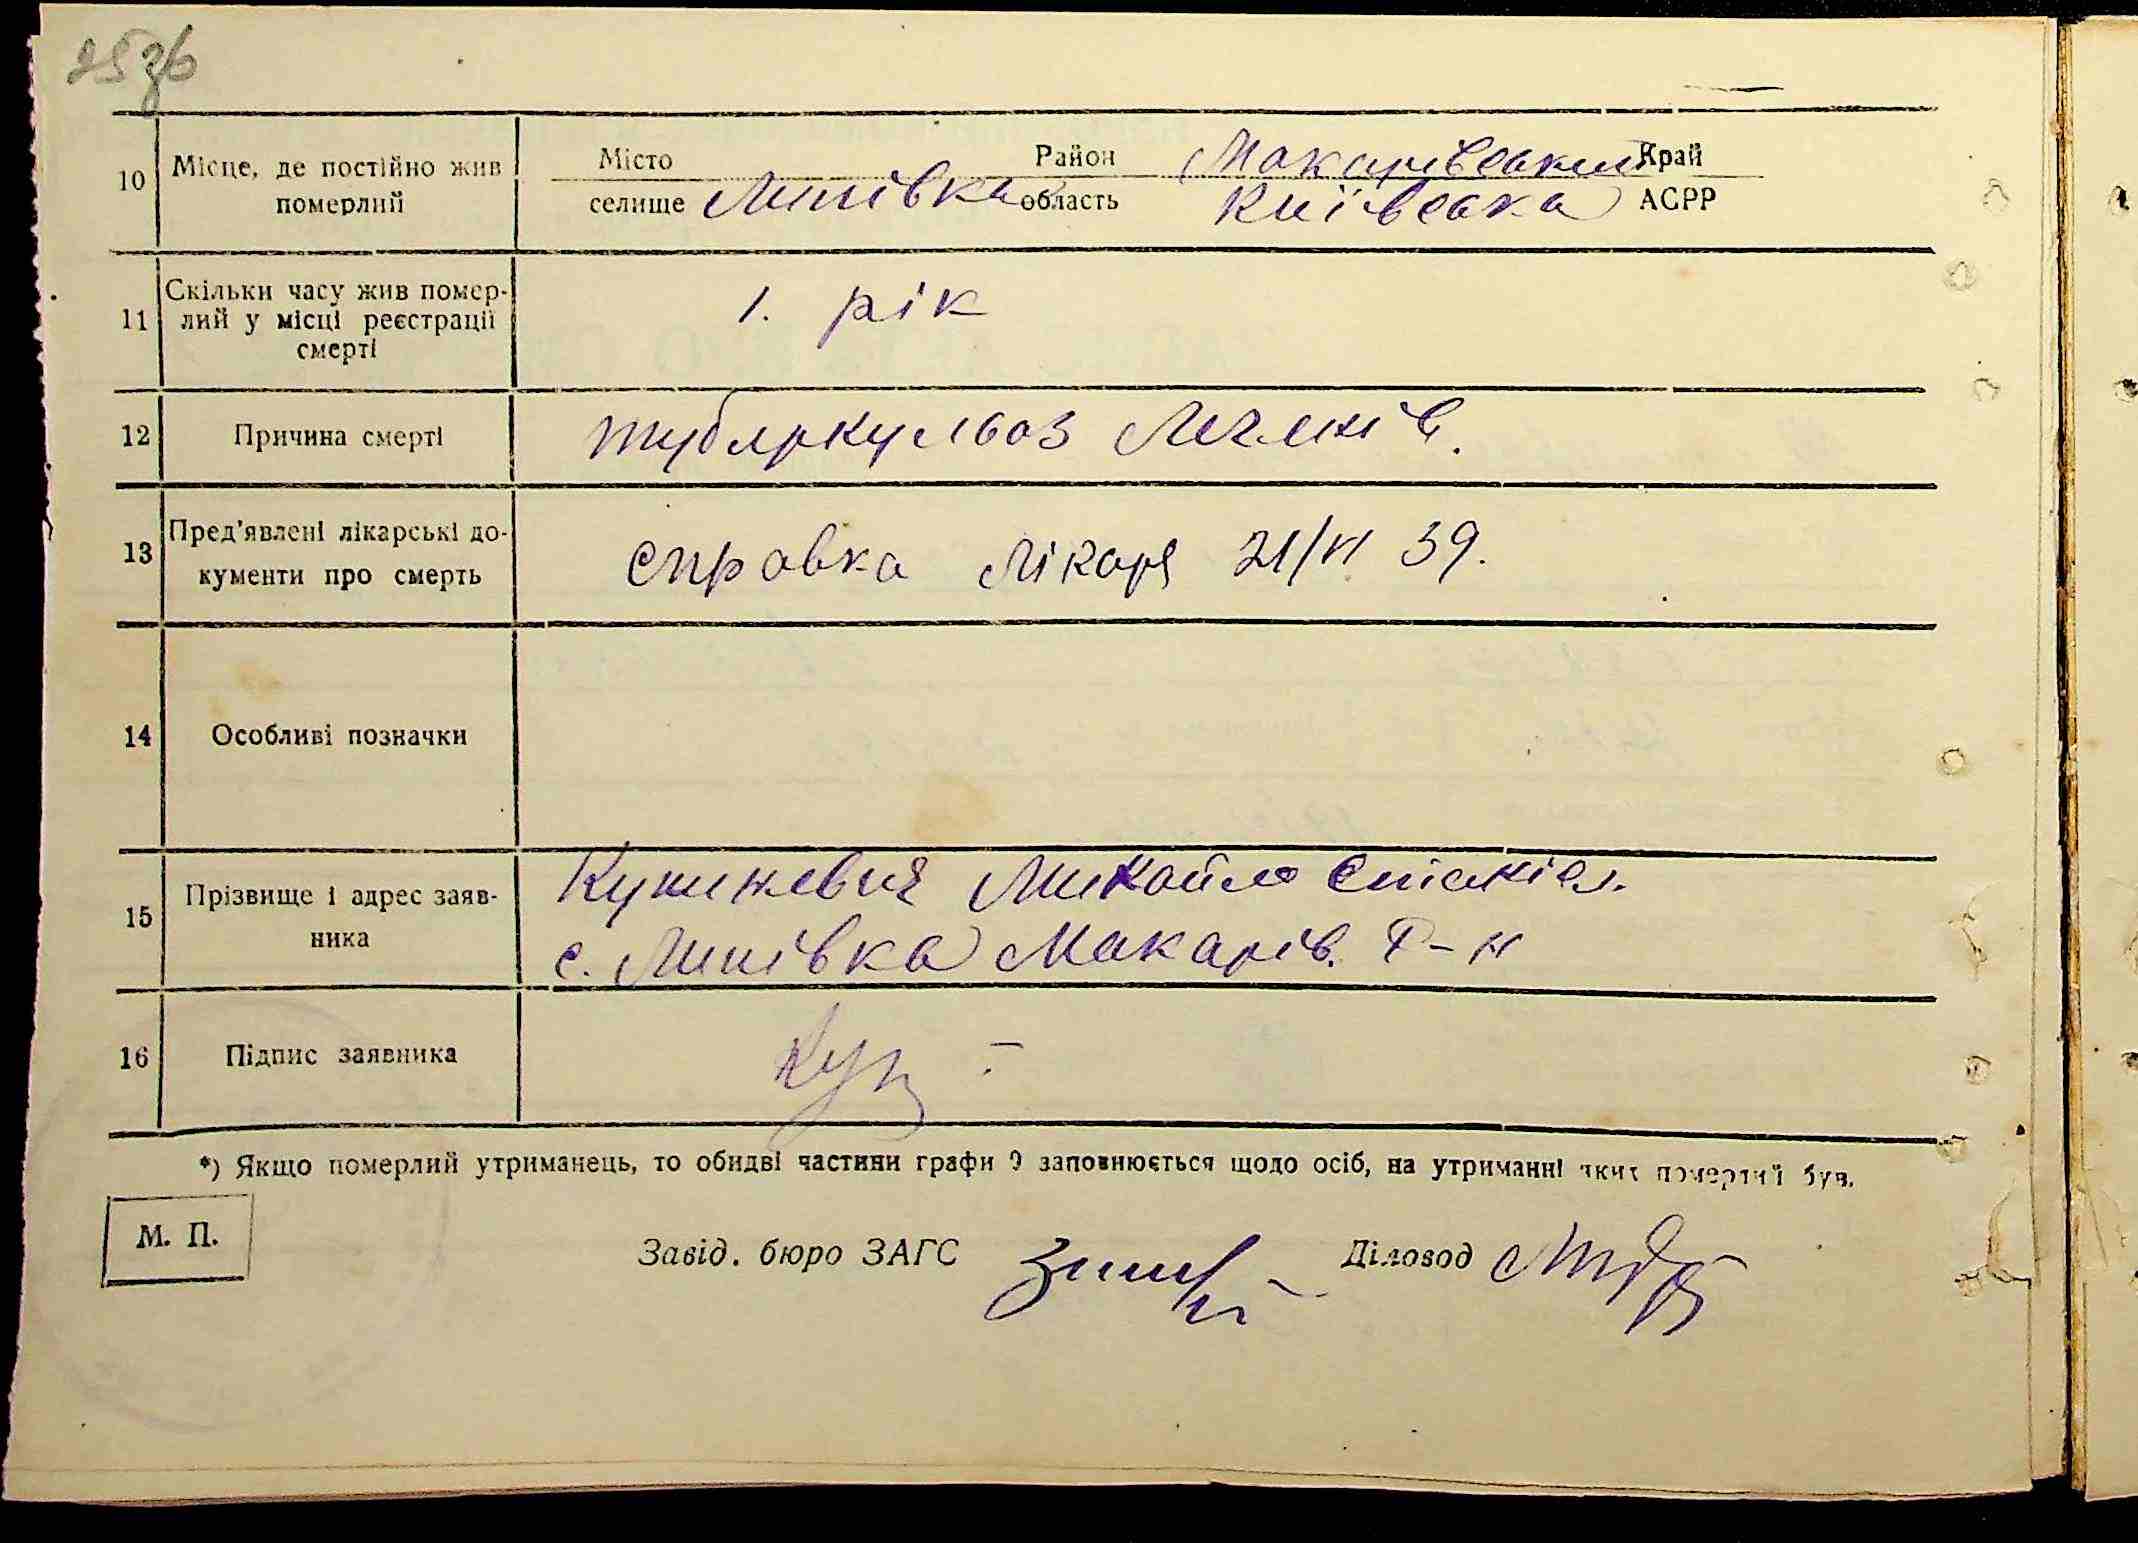 25зв
10 Місце, де постійно жив померлий
Місто Район Макарівський Край
селище Липівка область Київська АСРР
11 Скільки часу жив помер-
лий у місці реєстрації
смерті
1. рік
12 Причина смерті
туберкульоз Легенів.
13 Пред'явлені лікарські до-
кументи про смерть
справка лікаря 21/VI 39.
14 Особливі позначки
15 Прізвище і адрес заяв-
ника
Михайло
с. Липівка Макарів. Р-н
16 Підпис заявника
*) Якщо померлий утриманець, то обидві частини графи 9 заповнюється щодо осіб, на утриманні яких померлий був.
М. П.
Завід. бюро ЗАГС Діловод